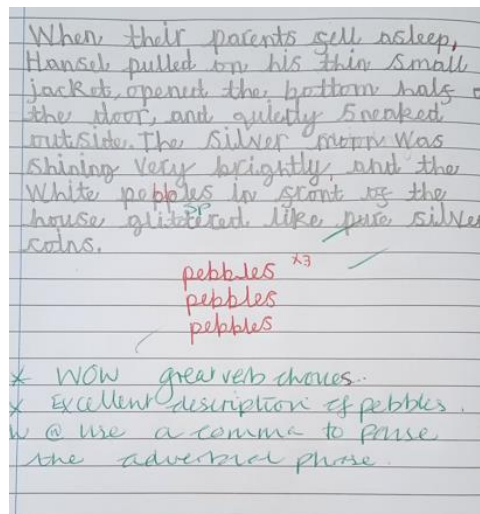 When their parents fell asleep,
Hansel pulled on his thin small
jacket, opened the bottom half
the door, and quietly sneaked
outside. The silver moon was
shining very brightly, and the
White pebbles in front of the
house glittered like pure silver
coins.
SP
pebbles x3
pebbles
pebbles
* WOW great verb choices.
* Excellent description of pebbles.
@ use a comma to parse
the adverbial phrase.